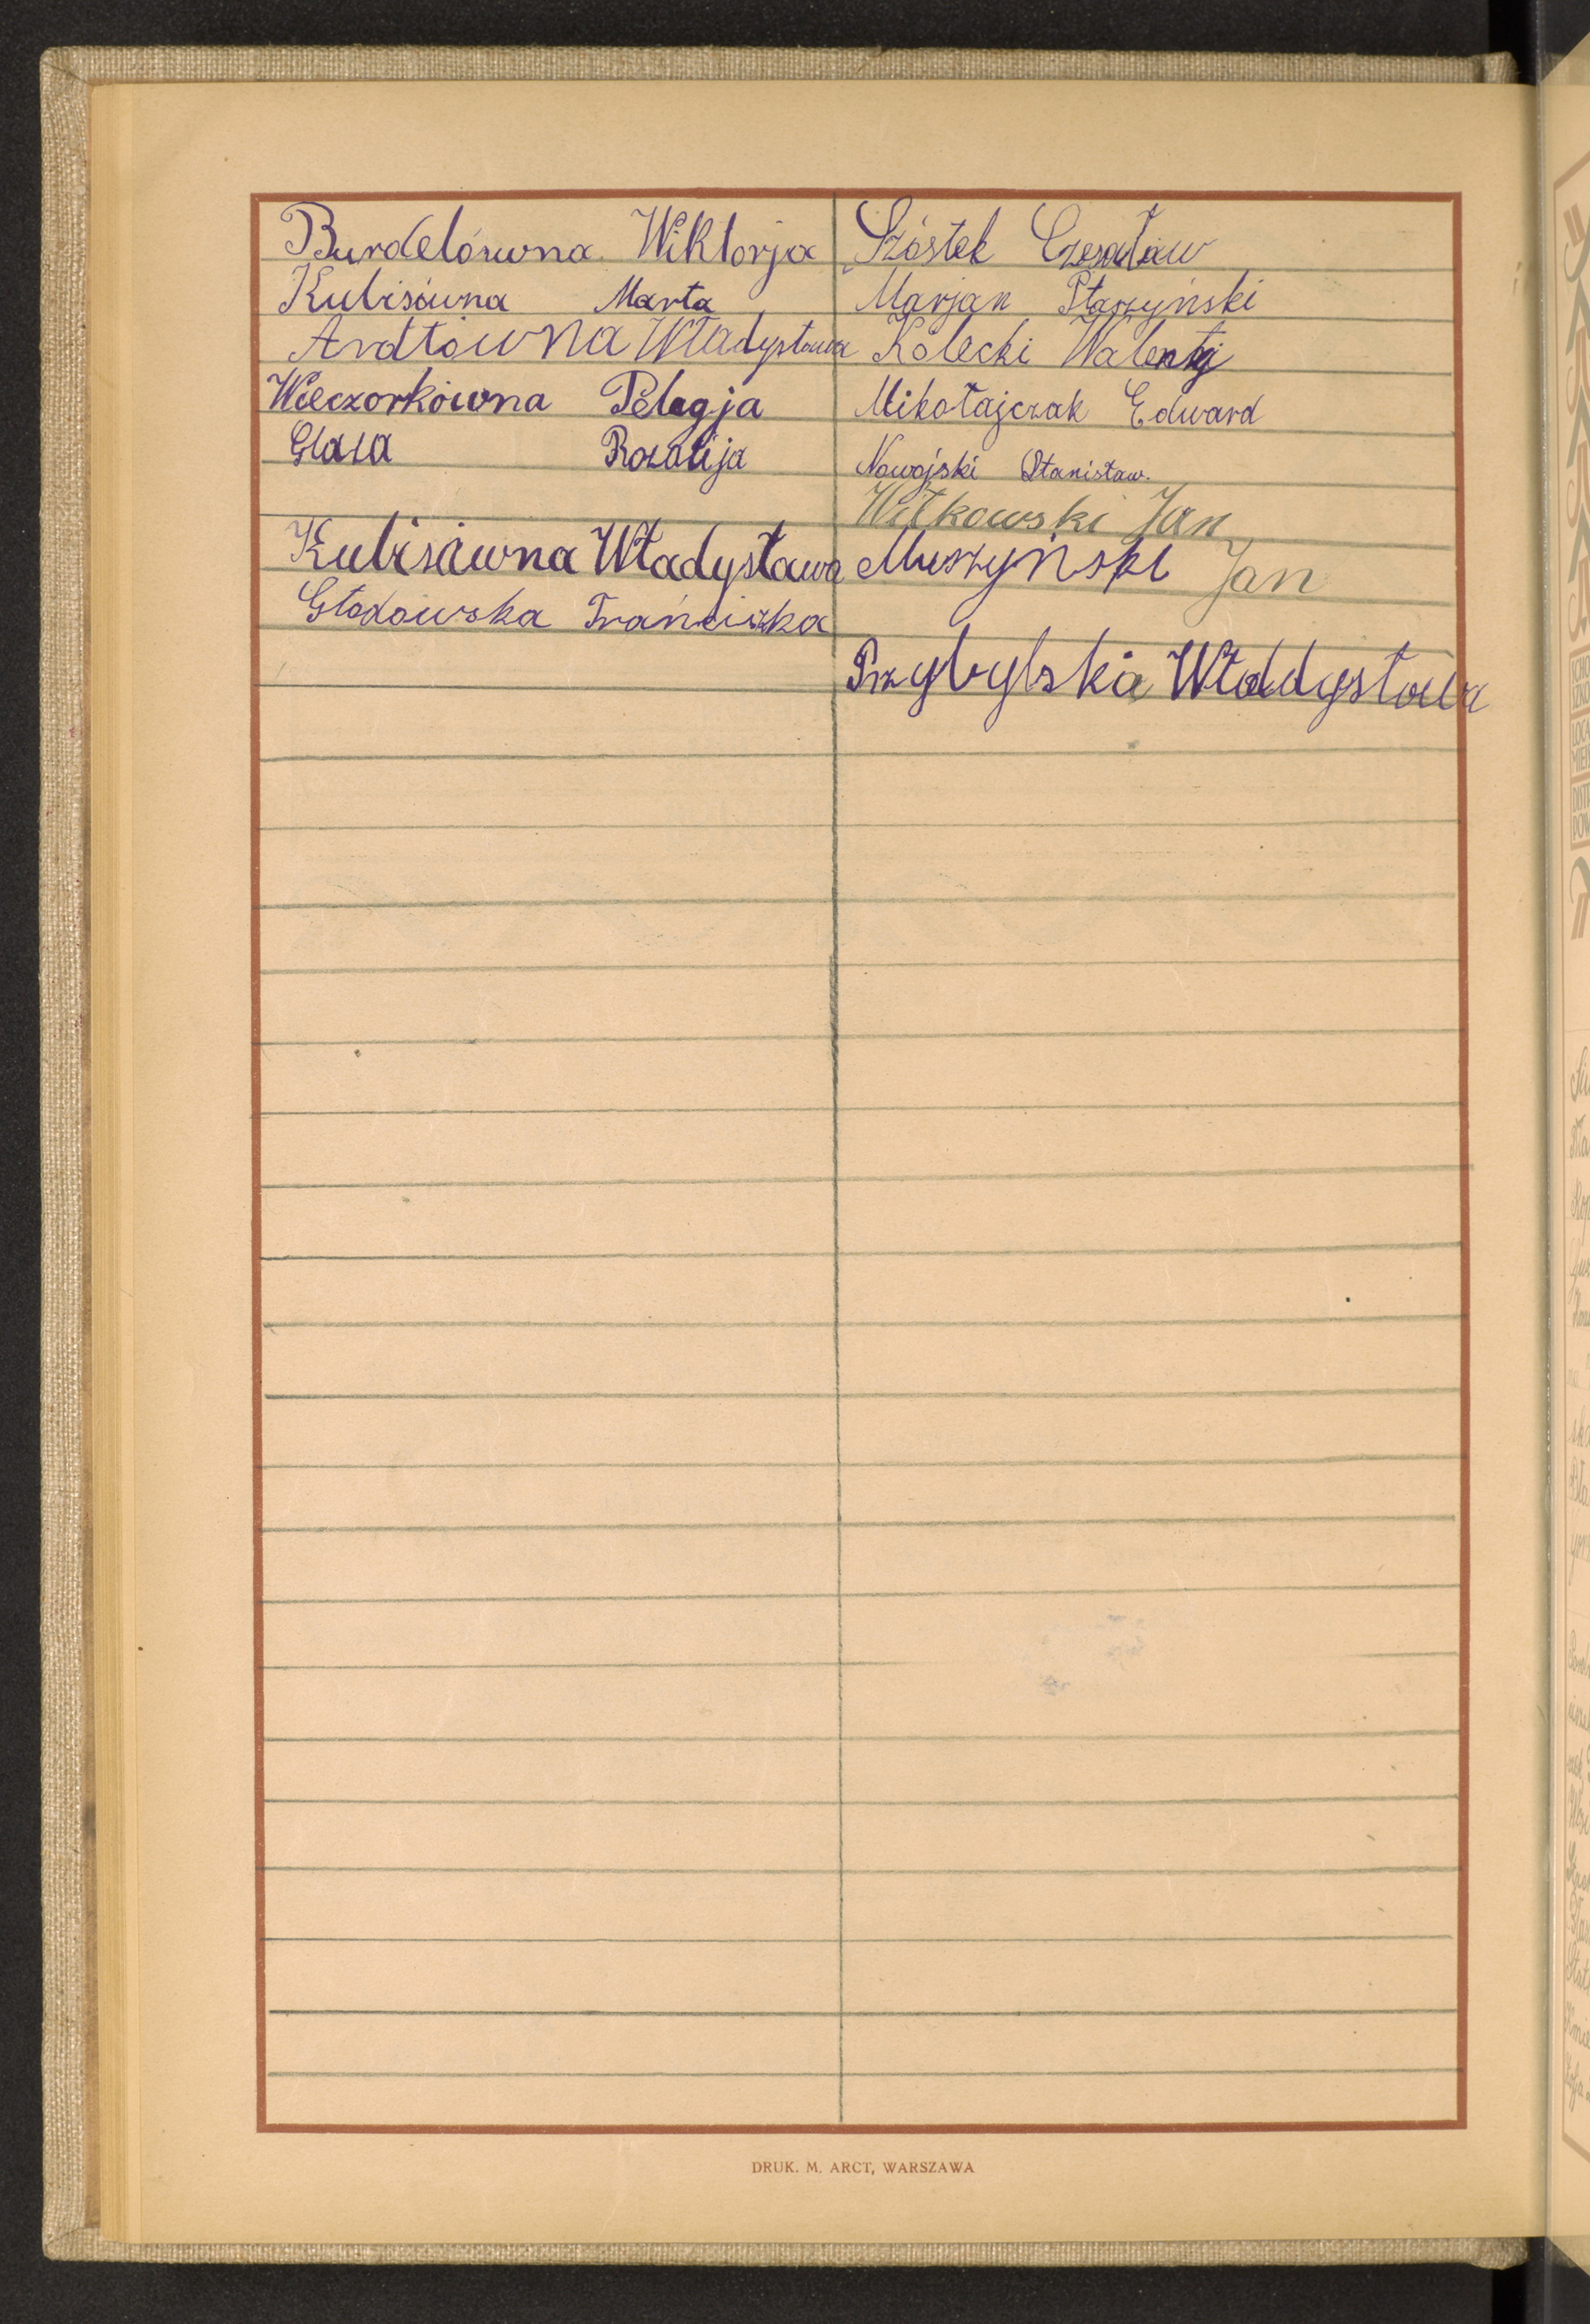 Burdelówna Wiktorja
Kubisiówna Marta
Ardtówna Władysława
Wieczorkówna Pelagja
Glaza Rozalija
Kubisiówna Władysława
Głodowska Franciszka
Szóstek Czesław
Marjan Ptaszyński
Kolecki Walenty
Mikołajczak Edward
Nowojski Stanisław.
Witkowski Jan
Muszyński Jan
Przybylska Władysława
DRUK. M. ARCT, WARSZAWA